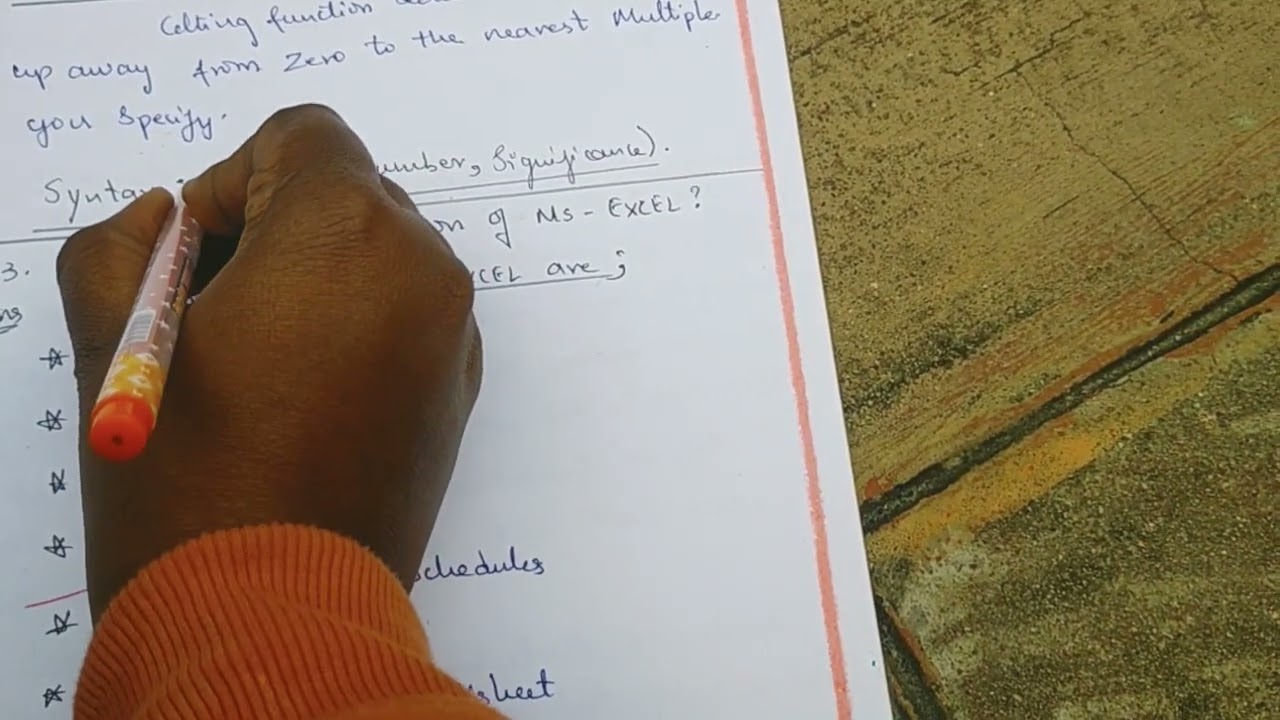 Celting function
up away from Zero to the nearest Multiple
you Specify.
Syntax umber, Significance).
on of MS - EXCEL?
3. XCEL are ;
Ans
schedules
sheet